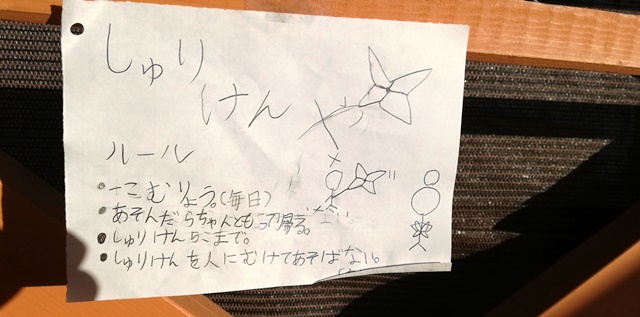 しゅり
けん
ルール
・一こむりょう。(毎日)
・あそんだらちゃんともって帰る。
・しゅりけん5こまで。
・しゅりけんを人にむけてあそばない。